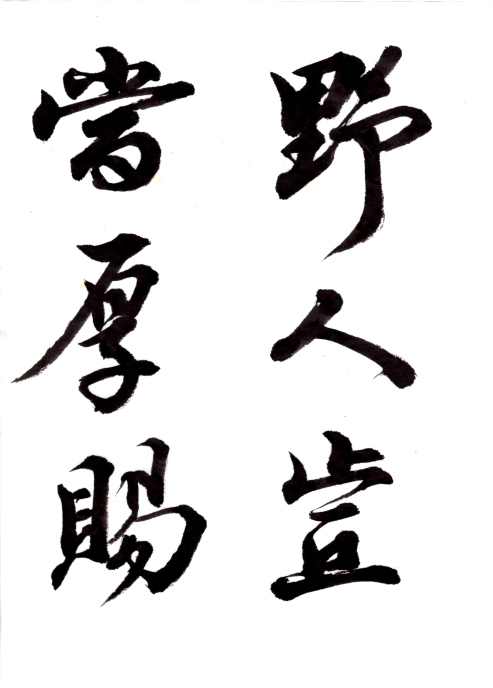 野人豈
當厚賜